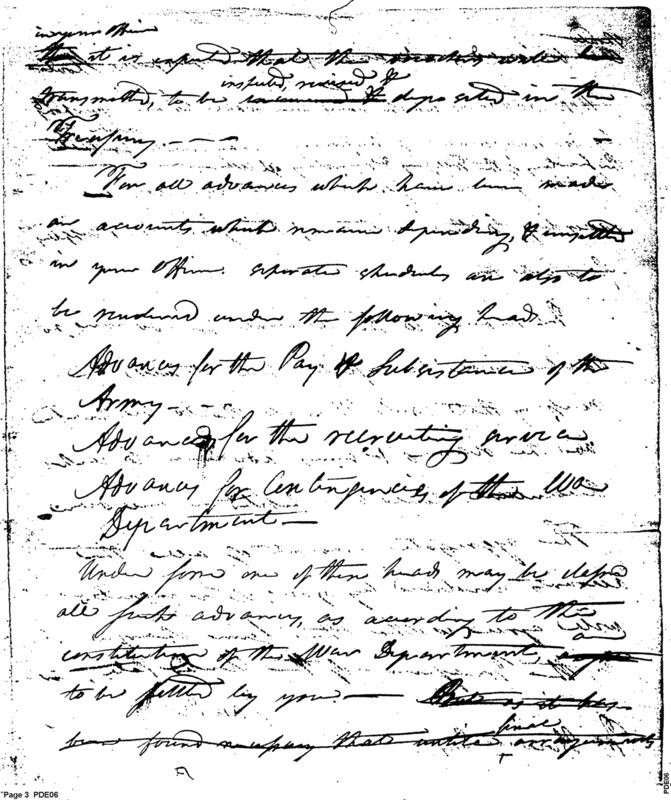 in your Office
then it is expected that the vouchers will be
instituted, received &
transmitted, to be deposited in the
Treasury. — — —
For all advances which have been made
on accounts which remain depending, & unsettled
in your Office. separate schedules are also to
be rendered under the following heads
Advances for the Pay & Subsistance of the
Army — - -
Advances for the recruiting service
Advances for Contingencies of the War
Department —
Under some one of these heads may be classed
all such advances, as according to the
constitution of the War Department, are
to be settled by you. — But as it has
been found necessary that until arrangements
"Page 3 PDE06
PDE06